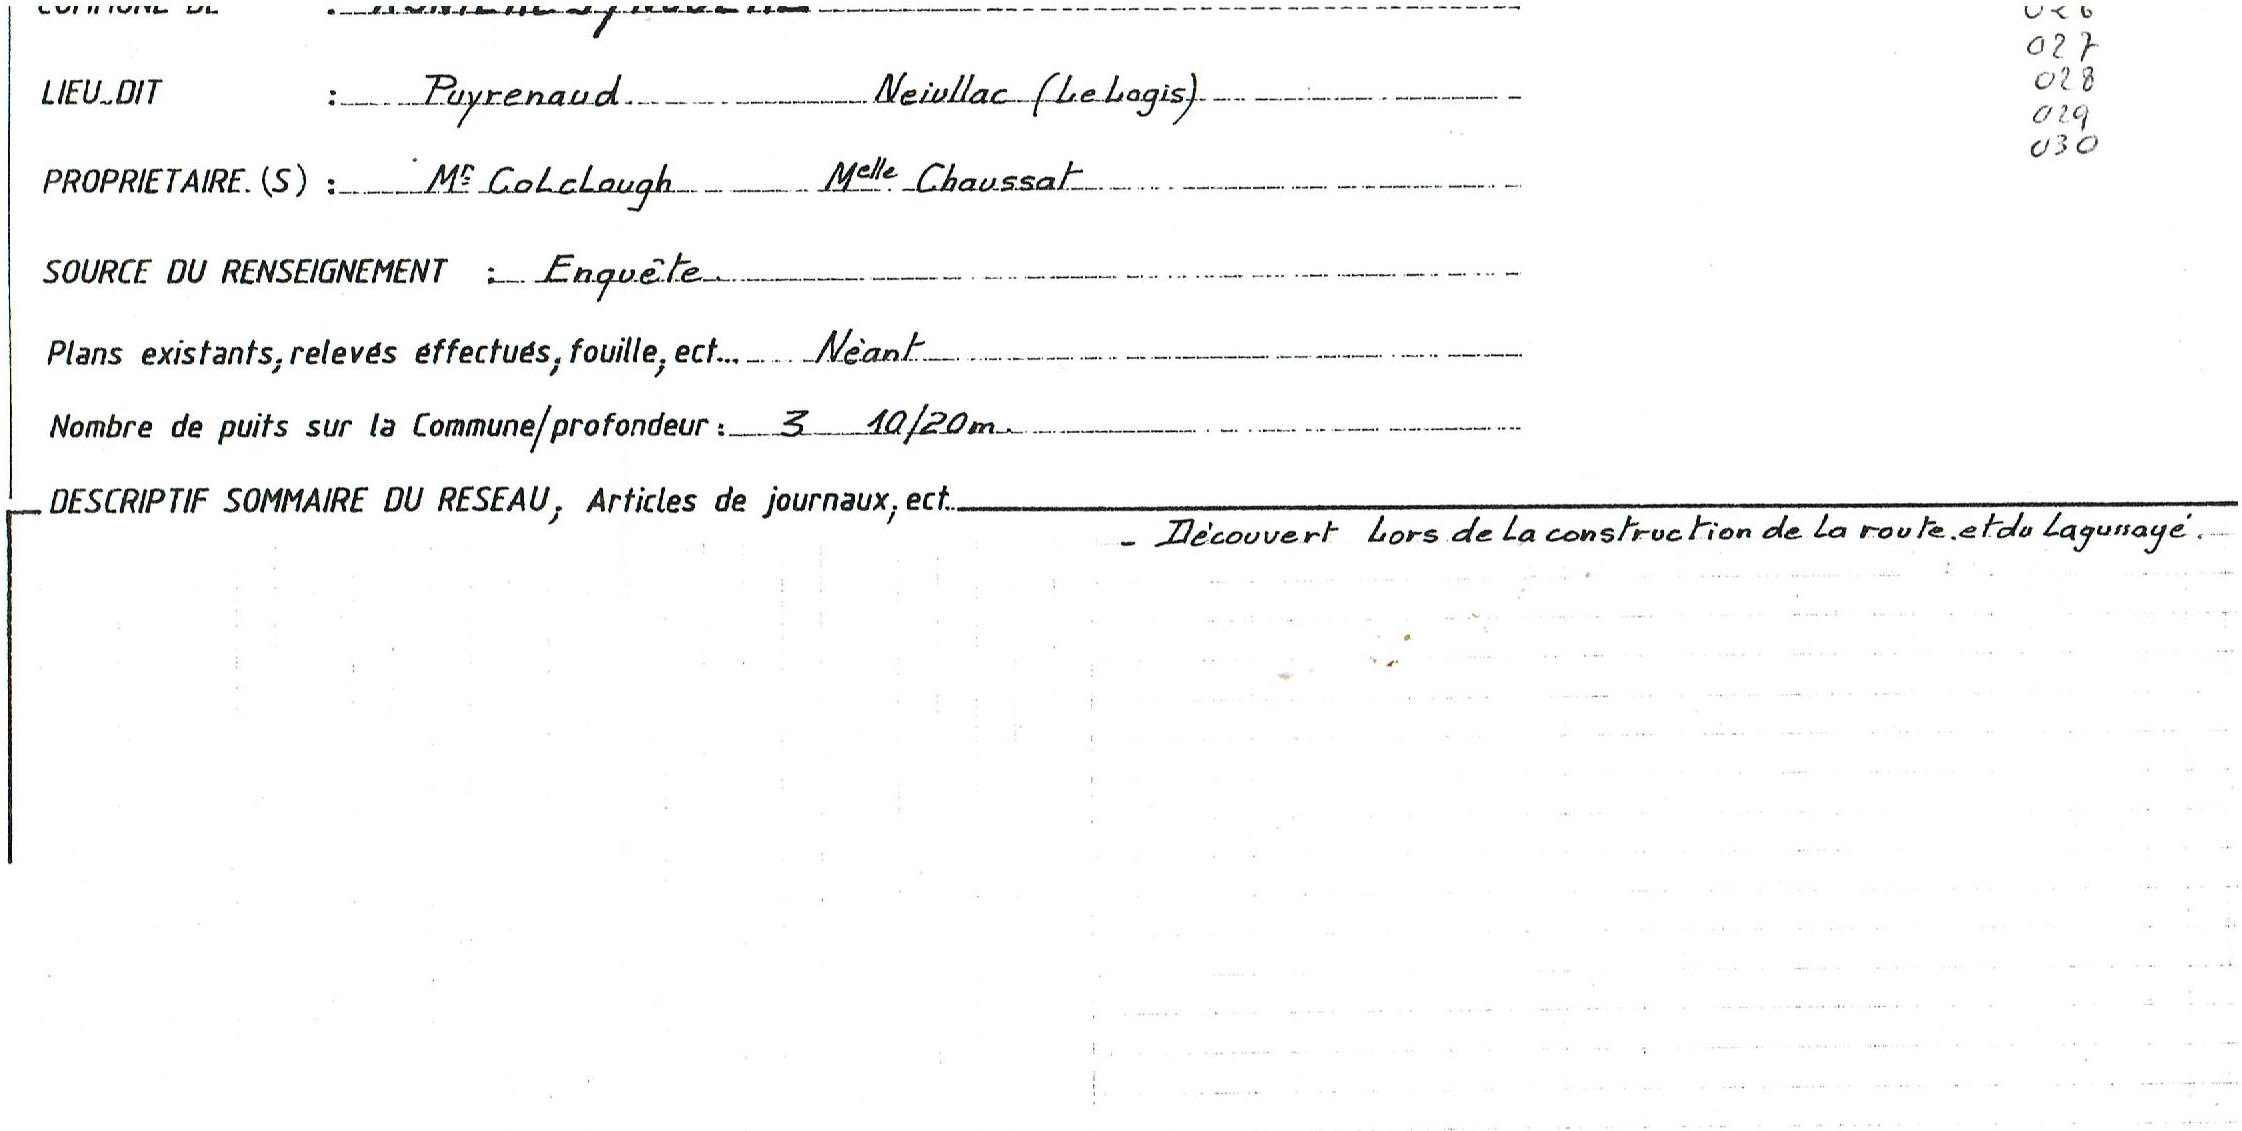 COMMUNE DE :
026
027
LIEU-DIT : Puyrenaud Neiullac (Le Logis)
028
029
030
PROPRIETAIRE.(S) : Mr Colclough Melle Chaussat
SOURCE DU RENSEIGNEMENT : Enquête
Plans existants, relevés éffectués, fouille, ect... Néant
Nombre de puits sur la Commune/profondeur : 3 10/20m.
DESCRIPTIF SOMMAIRE DU RESEAU, Articles de journaux, ect.
- Découvert Lors de la construction de la route.et du